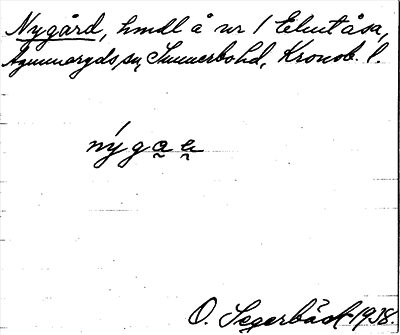 Nygård, hmdl å nr 1 Elmtåsa,
Agunnaryds sn, Sunnerbo hd, Kronob. l.
nýga̰ a̰
O. Segerbäck 1938.